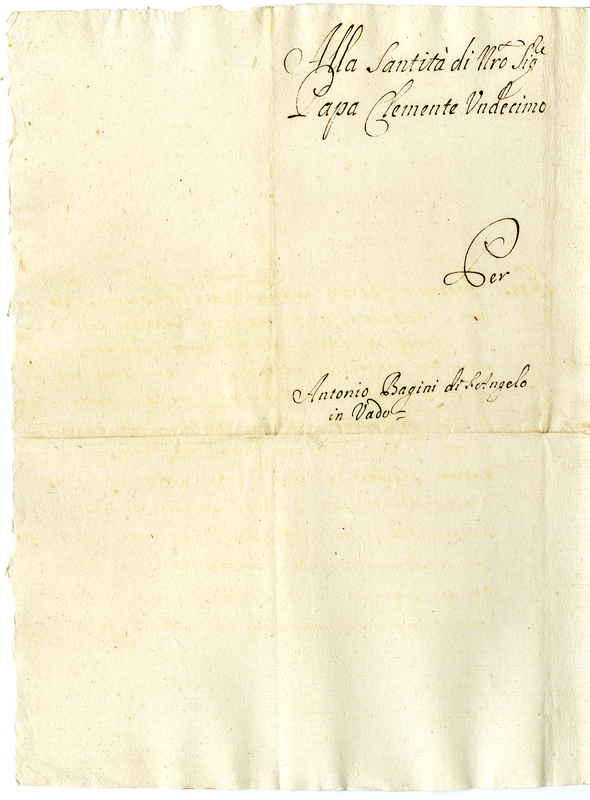 Alla Santità di Nro Sigre
Papa Clemente Undecimo
Per
Antonio Bagini di S. Angelo
in Vado